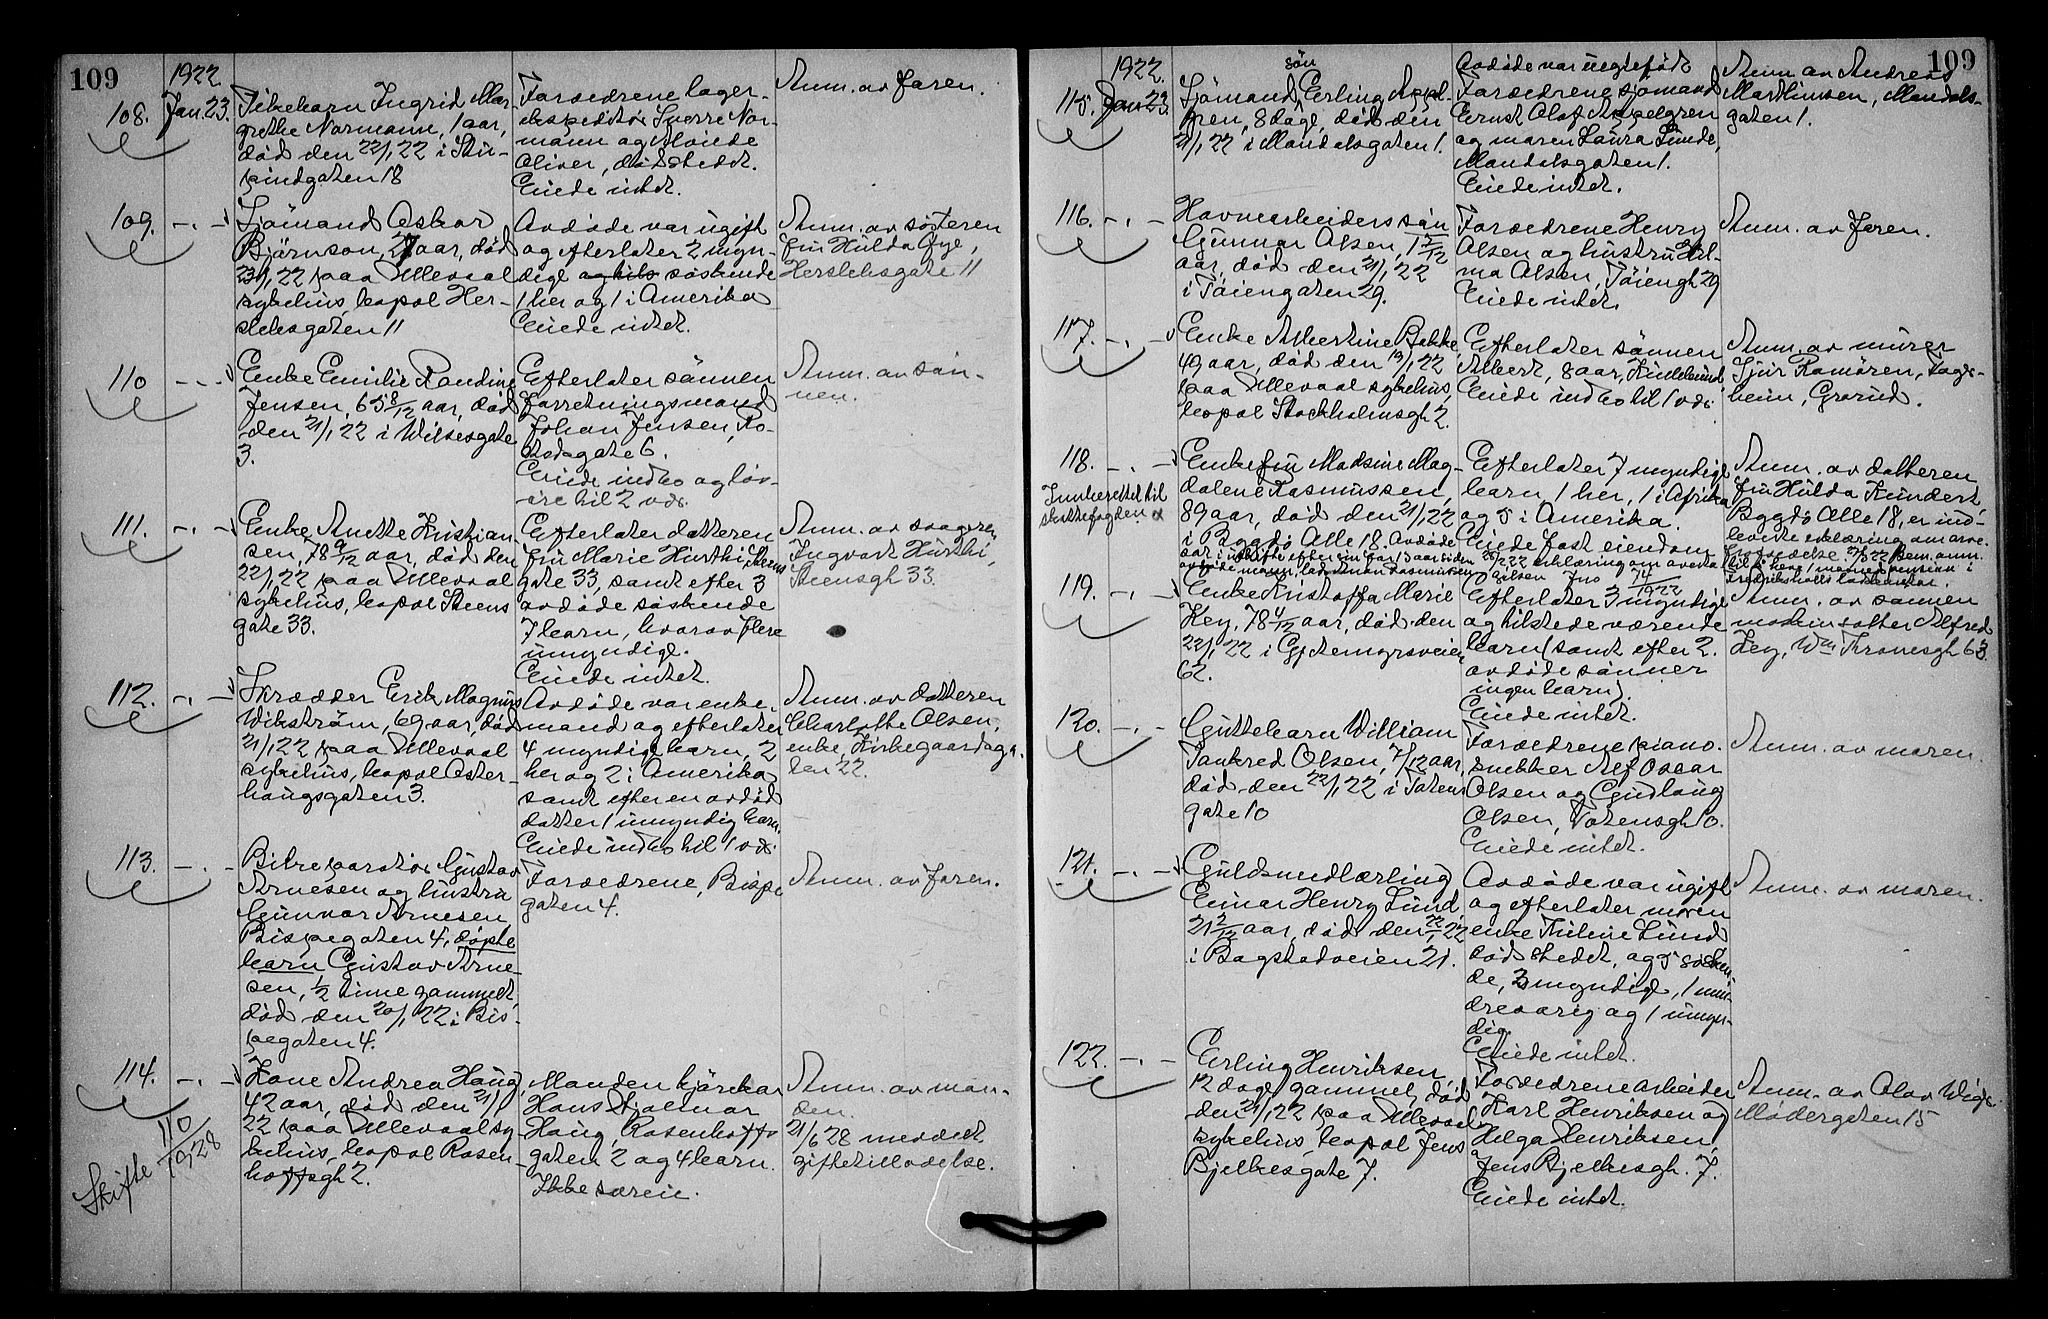 109
1922
108. Jan. 23.
Pikebarn Ingrid Mar-
grethe Normann, 1 aar,
død den 22/1 22 i Stu-
pindgaten 18
Forældrene lager-
ekspeditør Sverre Nor-
mann og
Oliver, dødsstedet.
Eiede intet.
Anm. av faren.
109. -"-
Sjömand Oskar
Björnson, 27 aar, død
23/1 22 paa Ullevaal
sykehus, bopæl Her-
slebsgaten 11
Avdøde var ugift
og efterlater 2 myn-
dige søskende
1 her og 1 i Amerika
Eiede intet.
Anm. av søsteren
fru Hulda Øye,
Herslebsgate 11
110 -"-
Enke Emilie Randine
Jensen, 65 8/12 aar, død
den 21/1 22 i Wilsesgate
3.
Efterlater sønnen
forretningsmand
Johan Jensen, To-
stadgate 6.
Eiede indbo og løs-
øre til 2 vds.
Anm. av søn-
nen.
111. -"-
Enke Anette Kristian
sen, 78 9/12 aar, død den
22/1 22 paa Ullevaal
sykehus, bopæl Steens
gate 33.
Efterlater datteren
fru Marie Hurthi, Steens
gate 33, samt efter 3
avdøde søskende
7 barn, hvorav flere
umyndige.
Eiede intet.
Anm. av svogeren,
Ingvart Hurthi,
Steensgt 33.
112. -"-
Skrædder Erik Magnus
Wikström, 69 aar, død
21/1 22 paa Ullevaal
sykehus, bopæl Oster-
haugsgaten 3.
Avdøde var enke-
mand og efterlater
4 myndige barn, 2
her og 2 i Amerika
samt efter en avdød
datter 1 umyndig barn.
Eiede indbo til 1 vds.
Anm. av datteren
Charlotte Olsen,
enke, Kirkegaardsga-
ten 22.
113. -"-
Bilreparatør Gustav
Arnesen og hustru
Gunvor Arnesen
Bispegaten 4, døpte
barn Gustav Arne-
sen, 1/2 time gammelt
død den 20/1 22 i Bis-
pegaten 4.
Forældrene, Bispe
gaten 4.
Anm. av faren.
114. -"-
Kone Andrea Haug
42 aar, død den 21/1
22 paa Ullevaal sy-
kehus, bopæl Rosen-
hoffsgt 2.
Skifte 110/1928
Manden kjørekar
Hans Hjalmar
Haug, Rosenhoffs
gaten 2 og 4 barn.
Ikke særeie.
Anm. av man-
den.
21/6 28 meddelt
giftetilladelse.
109
1922.
115. Jan 23.
søn
Sjömand Erling Appel-
gren, 8 dage, død den
21/1 22 i Mandalsgaten 1.
Avdøde var uegtefødt
Forældrene sjömand
Ernst Olaf Appelgren
og moren Laura Lunde,
Mandalsgaten 1.
Eiede intet.
Anm av Andreas
Marthinsen, Mandals-
gaten 1.
116. -"-
Havnearbeiders søn
Gunnar Olsen, 1 5/12
aar, død den 21/1 22
i Tøiengaten 29.
Forældrene Henry
Olsen og hustru Hil-
ma Olsen, Tøiengt 29
Eiede intet.
Anm. av faren.
117. -"-
Enke Albertine Bakke,
49 aar, død den 19/1 22
paa Ullevaal sykehus,
bopæl Stockholmsgt 2.
Efterlater sønnen
Albert, 8 aar,
Eiede indbo til 1 vds.
Anm. av murer
Sjur Ramøren,
heim, Grorud.
118. -"-
Innberettet til
skiftefogden
Enkefru Madsine Mag-
dalene Rasmussen,
89 aar, død den 21/1 22
i Bygdø Alle 18. Avdøde
Efterlater 7 myndige
barn 1 her, 1 i Afrika
og 5 i Amerika.
Eiede fast eiendom
Anm. av datteren
fru Hulda Kindert,
Bygdø Alle 18, er ind-
levert erklæring om arve-
119. -"-
Enke Kristoffa Marie
Hey, 78 4/12 aar, død den
22/1 22 i Gjetemyrsveien
62.
Efterlater 3 myndige
og tilstede værende
barn (samt efter 2
avdøde sønner
ingen barn).
Eiede intet.
Anm. av sønnen
maskinsætter Alfred
Hey, Wm Thranesgt 63.
120. -"-
Guttebarn William
Tankred Olsen, 7/12 aar,
død den 22/1 22 i Totens
gate 10
Forældrene piano-
snekker Alf Oscar
Olsen og Gudlaug
Olsen, Totensgt 10.
Eiede intet.
Anm. av moren.
121. -"-
Guldsmedlærling
Einar Henry Lund,
21 2/12 aar, død den 22/1 22
i Bogstadveien 21.
Avdøde var ugift
og efterlater moren
enke Thilene Lund
dødsstedet, og 5 søsken-
de, 3 myndige, 1 min-
dreaarig og 1 umyn-
dig.
Eiede intet.
Anm. av moren.
122. -"-
Erling Henriksen,
12 dage gammel, død
den 21/1 22 paa Ullevaal
sykehus, bopæl Jens
Bjelkesgate 7.
Forældrene arbeider
Karl Henriksen og
Helga Henriksen,
Jens Bjelkesgt. 7.
Eiede intet.
Anm. av Olav Wiig,
Mødergaten 15